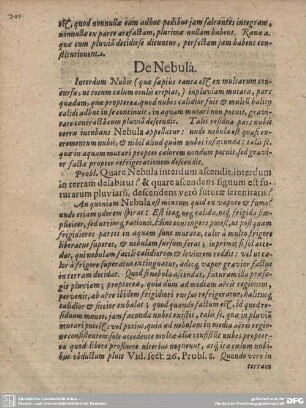 est, quod nonnullæ eam adhuc pedibus jam saltantes integram,
nonnullæ ex parte arefactam, plurimæ nullam habent. Rana a.
qua cum pluviâ decidisse dicuntur, perfectam jam habent con-
stitutionem.
De Nebulâ.
Interdum Nubis (quæ sæpius tanta est ex multarum con-
cursu, ut totum cælum oculis eripiat,) in pluviam mutata, pars
quædam, quæ propterea quod nubes calidior fuit & multũ halitꝰ
calidi adhuc in se continuit, in aquam mutari non potuit, gravi-
tate contractâ domum descendit. Talis residua pars nubis
verna inenbans Nebula appellatur: unde nebula est quasi ex-
crementum nubis, & nihil aliud quàm nubes infæcunda: talis sc.
quæ in aquam mutari propter calorem nondum potuit, sed gravi-
or facta propter refrigerationem descendit.
Probl. Quare Nebula interdum ascendit, interdum
in terram delabitur? & quare ascendens signum est fu-
turarum pluviarũ, descendens verò futuræ serenitatis?
An quoniam Nebula est mixtum quid ex vapore & fumo?
unde etiam odorem spirat: Est itaq, neq calida, neq frigida sim-
pliciter, sed utriusq rationis. Hinc contingere potest, ut postquam
frigidiores partes in aquam sunt mutatæ, calor à multo frigore
liberatus superet, & nebulam sursum ferat; in primis si sol acce-
dat, qui nebulam facit calidiorem & leviorem reddit: vel ut ca-
lor à frigore superatus extinguatur, adeoq vapor gravior factus
in terram decidat. Quod si nebula ascendat, futuram illa præsa-
git pluviam; propterea, quia dum ad mediam aëris regionem
pervenit, ab aëre ibidem frigidiori rursus refrigeratur, halitusq
calidior & siccior exhalat; quod quando factum est, id quod re-
siduum manet, jam fæcunda nubes existit, talis sc. quæ in pluviã
mutari potest; vel potius, quia ad nebulam in media aëris regio-
ne consistentem accedente multa alia consistit nubes propter-
ea quod libero prosilvere ulterius nequeunt, atq ita cælum nubi-
bus obductum pluit Vid. sect. 26. Probl. 8. Quando verò in
terram